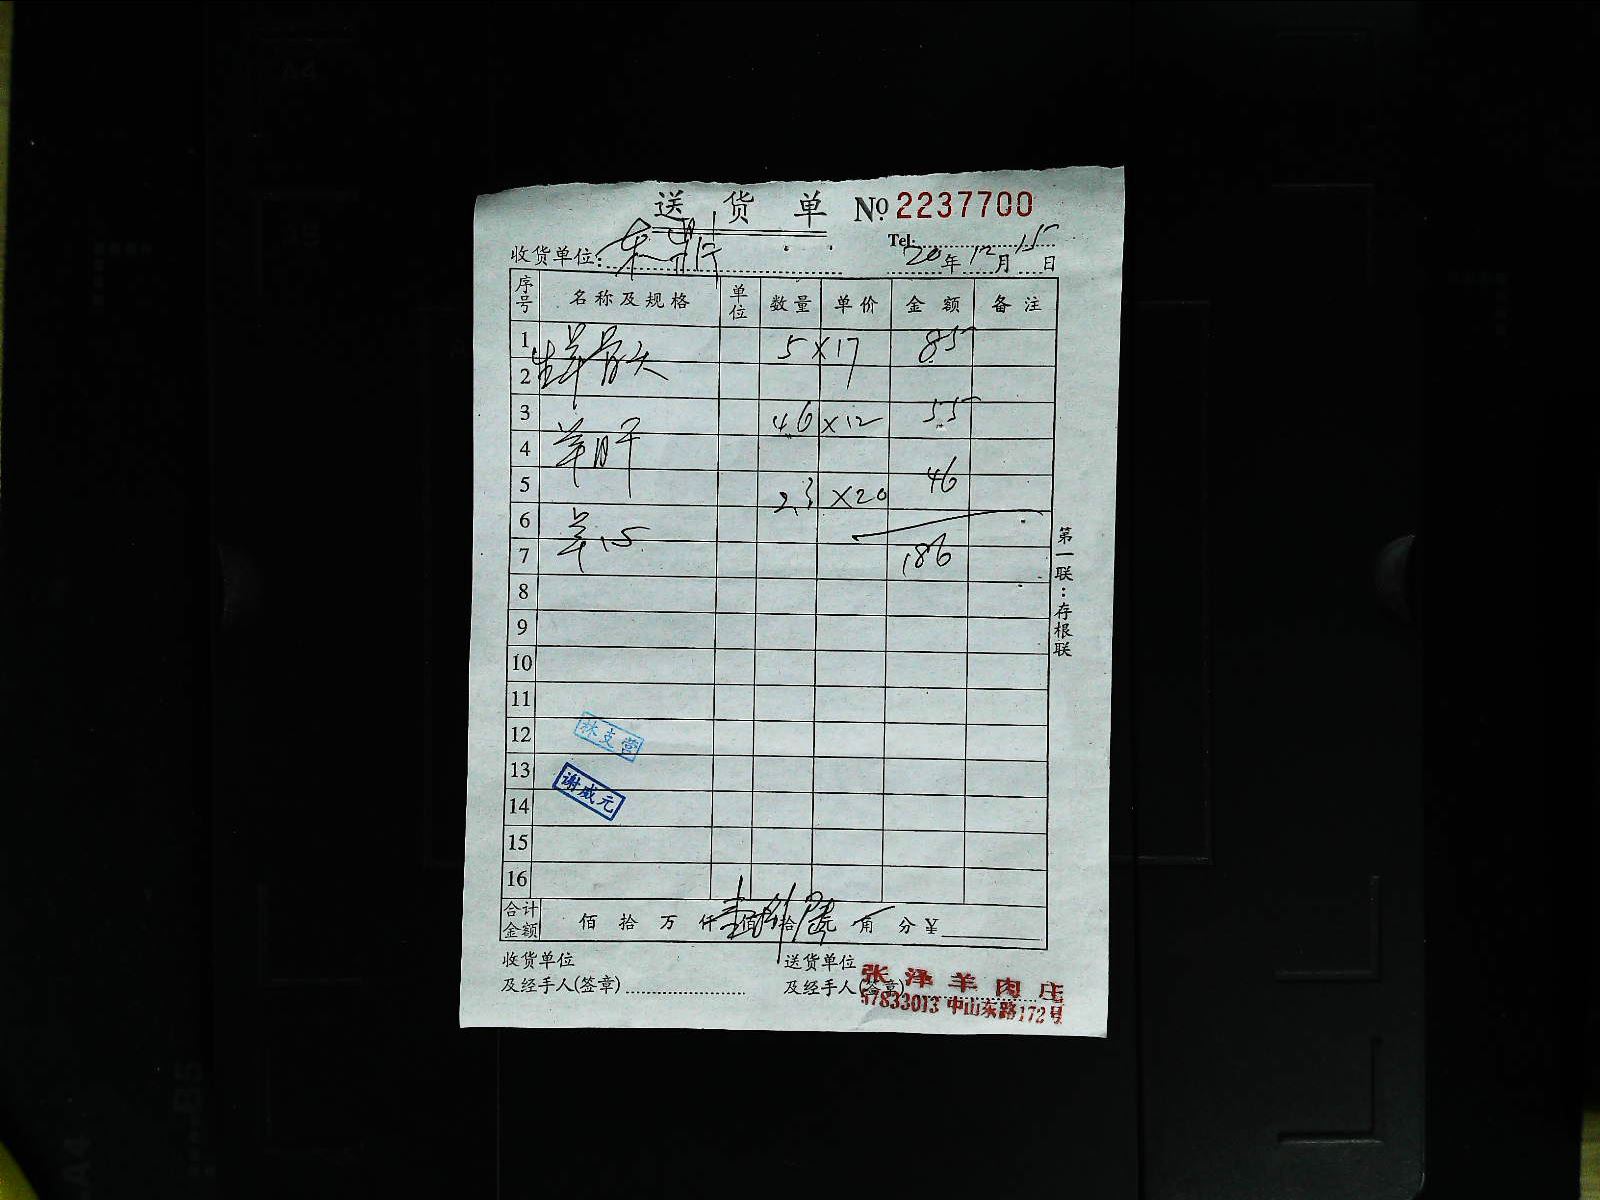 送货单 No 2237700
Tel:
收货单位: 20年12月15日
序号 名称及规格 单位 数量 单价 金额 备注
1 生羊骨头 5 × 17 85
2
3 4.6 × 12 55
4 羊肝
5 2.3 × 20 46
6 羊心
7 186
8
9
10
11
12 林支营
13 谢威元
14
15
16
合计金额 佰 拾 万 仟 壹佰捌拾陆元 角 分 ¥
收货单位 送货单位
及经手人(签章) 及经手人(签章)
张泽羊肉庄
57833013 中山东路172号
第一联:存根联